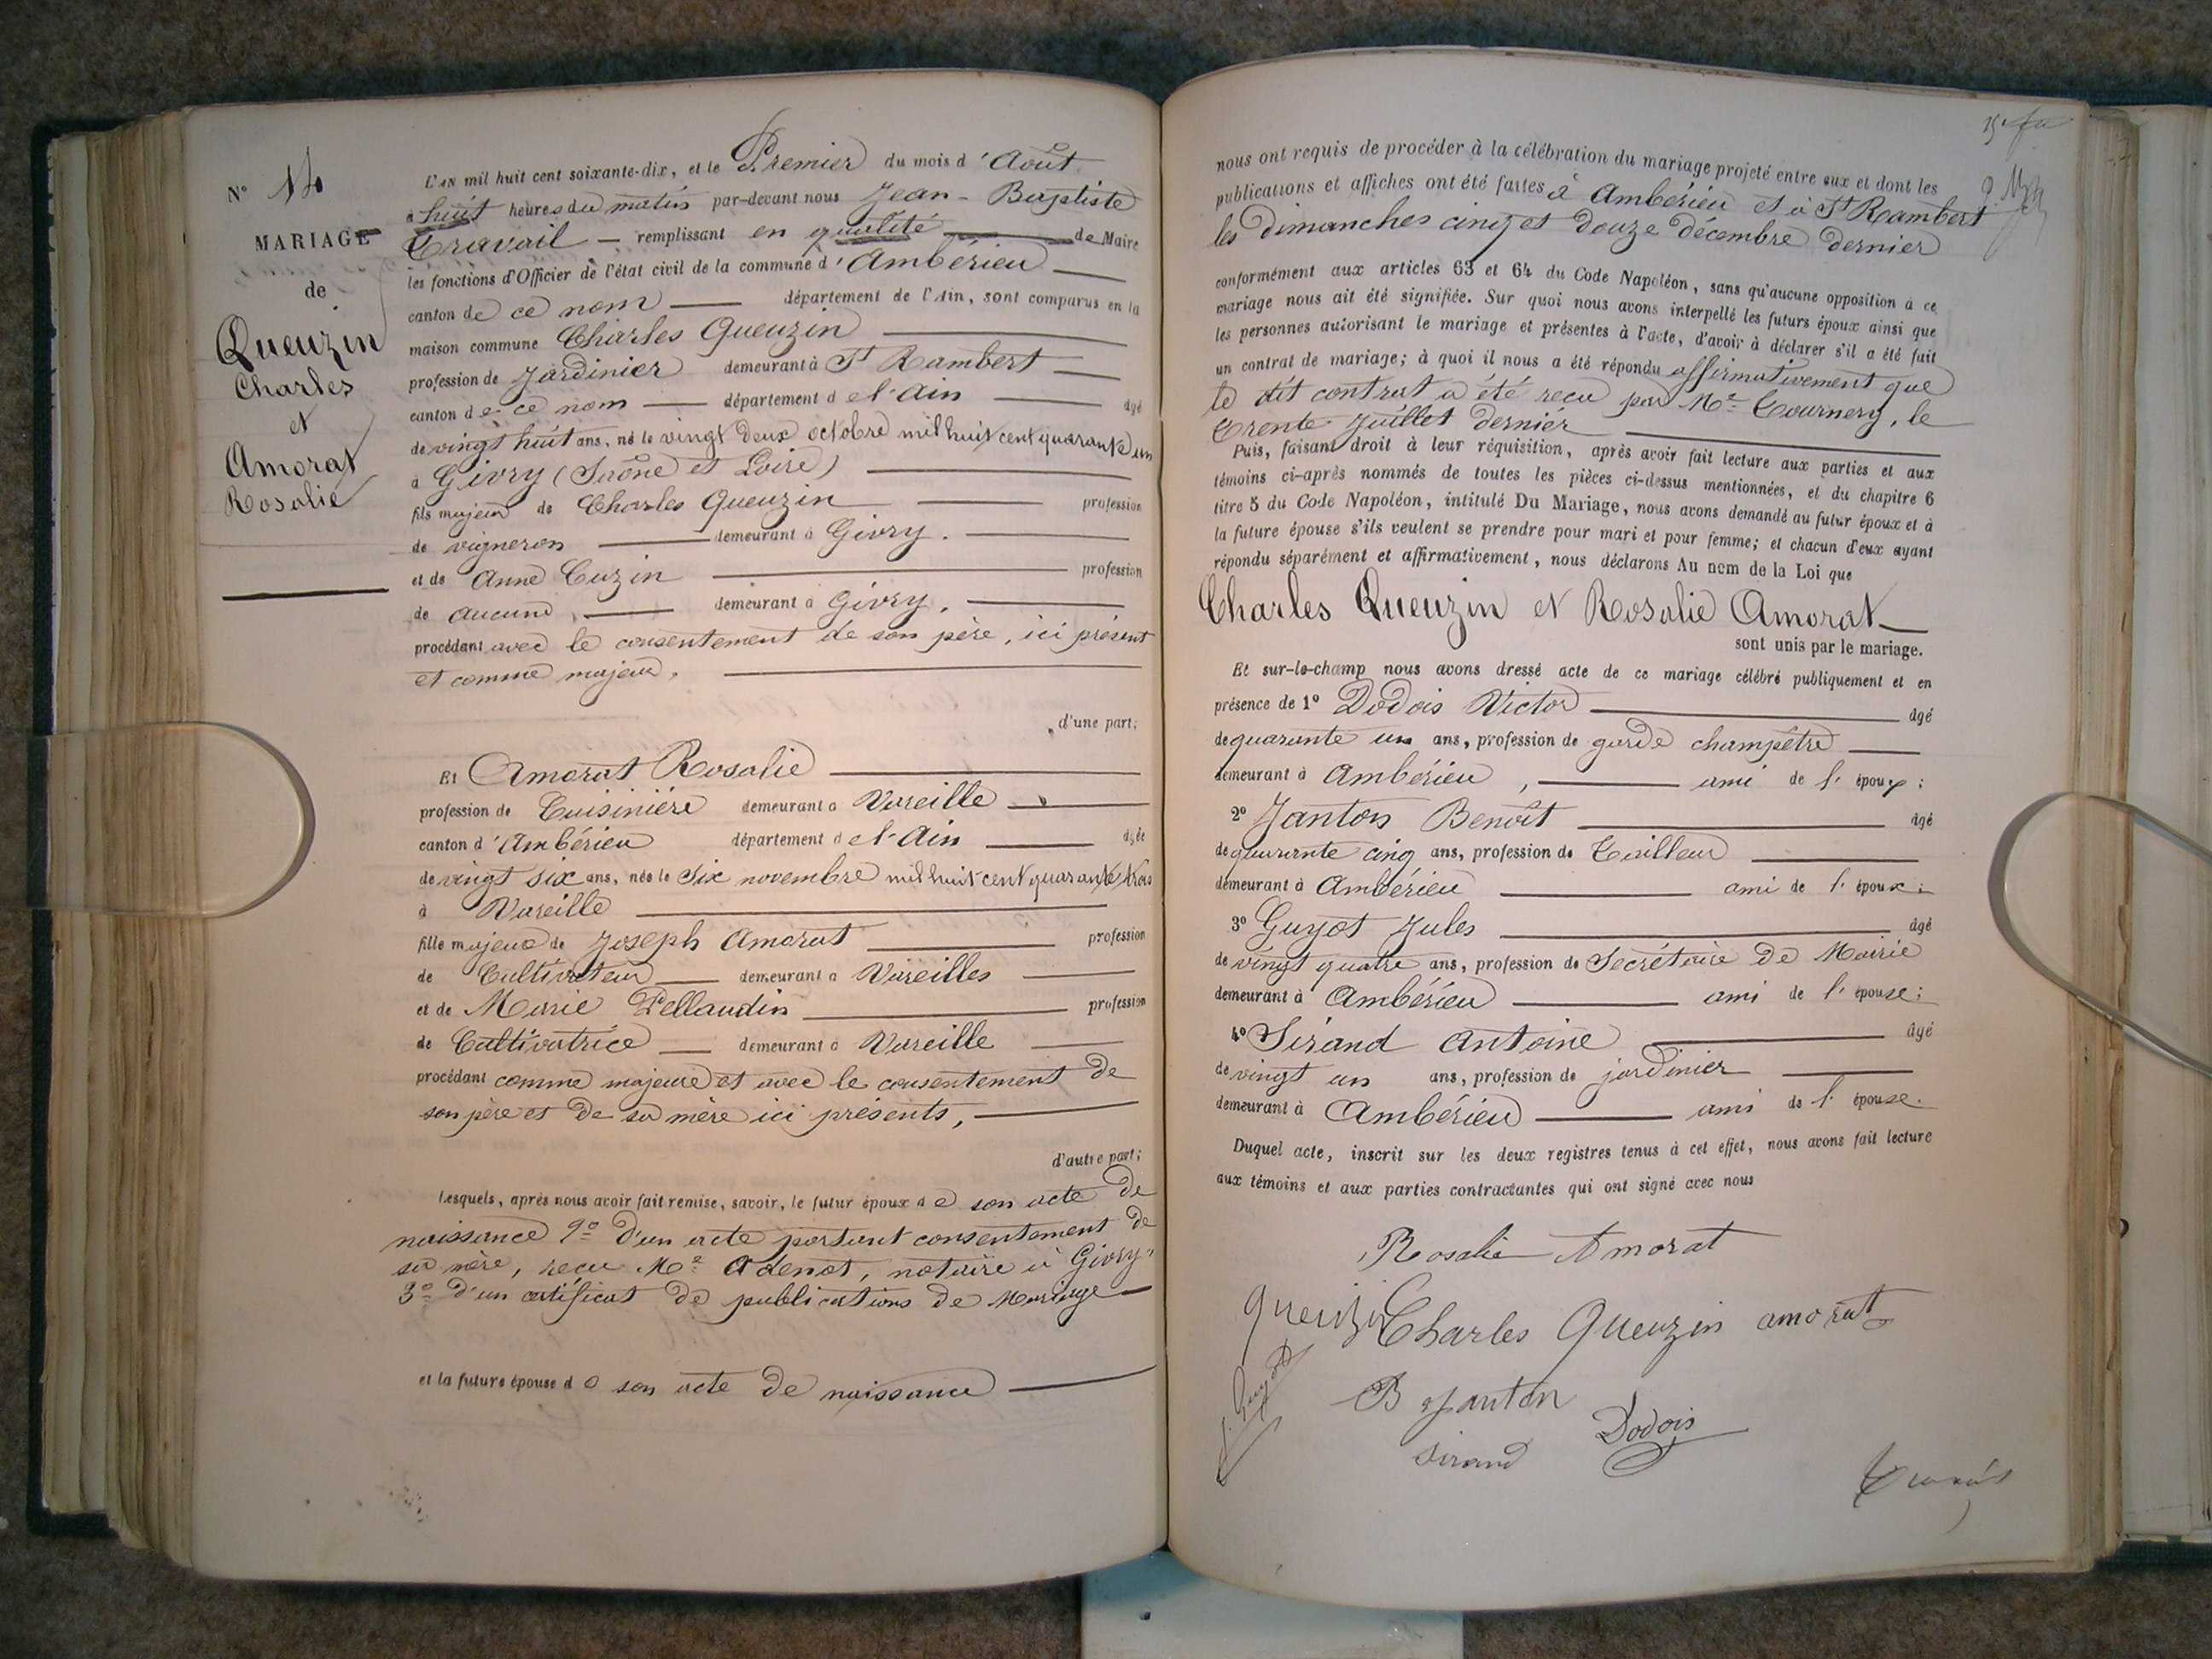 N° 14
MARIAGE
de
Queuzin
Charles
et
Amorat
Rosalie
L'AN mil huit cent soixante-dix, et le Premier du mois d'Août
à huit heures du matin par-devant nous Jean-Baptiste
Travail remplissant en qualité de Maire
les fonctions d'Officier de l'état civil de la commune d'Ambérieu
canton de ce nom département de l'Ain, sont comparus en la
maison commune Charles Queuzin
profession de Jardinier demeurant à St Rambert
canton de ce nom département de l'Ain âgé
de vingt huit ans, né le vingt deux octobre mil huit cent quarante un
à Givry (Saône et Loire)
fils majeur de Charles Queuzin profession
de vigneron demeurant à Givry.
et de Anne Cuzin profession
de aucune, demeurant à Givry,
procédant avec le consentement de son père, ici présent
et comme majeur,
d'une part;
Et Amorat Rosalie
profession de Cuisinière demeurant à Vareille
canton d'Ambérieu département de l'Ain âgée
de vingt six ans, née le Six novembre mil huit cent quarante trois
à Vareille
fille majeure de Joseph Amorat profession
de Cultivateur demeurant à Vareilles
et de Marie Pellaudin profession
de Cultivatrice demeurant à Vareille
procédant comme majeure et avec le consentement de
son père et de sa mère ici présents,
d'autre part;
Lesquels, après nous avoir fait remise, savoir, le futur époux de son acte de
naissance 2° d'un acte portant consentement de
sa mère, reçu Me Adenot, notaire à Givry,
3° d'un certificat de publications de Mariage
et la future épouse de son acte de naissance
nous ont requis de procéder à la célébration du mariage projeté entre eux et dont les
publications et affiches ont été faites à Ambérieu et à St Rambert
les dimanches cinq et douze décembre dernier
conformément aux articles 63 et 64 du Code Napoléon, sans qu'aucune opposition à ce
mariage nous ait été signifiée. Sur quoi nous avons interpellé les futurs époux ainsi que
les personnes autorisant le mariage et présentes à l'acte, d'avoir à déclarer s'il a été fait
un contrat de mariage; à quoi il nous a été répondu affirmativement que
le dit contrat a été reçu par Me Tournery, le
trente Juillet dernier
Puis, faisant droit à leur réquisition, après avoir fait lecture aux parties et aux
témoins ci-après nommés de toutes les pièces ci-dessus mentionnées, et du chapitre 6
titre 5 du Code Napoléon, intitulé Du Mariage, nous avons demandé au futur époux et à
la future épouse s'ils veulent se prendre pour mari et pour femme; et chacun d'eux ayant
répondu séparément et affirmativement, nous déclarons Au nom de la Loi que
Charles Queuzin et Rosalie Amorat
sont unis par le mariage.
Et sur-le-champ nous avons dressé acte de ce mariage célébré publiquement et en
présence de 1° Dodois Victor âgé
de quarante un ans, profession de garde champêtre
demeurant à Ambérieu, ami de l'époux;
2° Janton Benoît âgé
de quarante cinq ans, profession de Tailleur
demeurant à Ambérieu ami de l'époux;
3° Guyot Jules âgé
de vingt quatre ans, profession de Secrétaire de Mairie
demeurant à Ambérieu ami de l'épouse;
4° Sirand Antoine âgé
de vingt un ans, profession de jardinier
demeurant à Ambérieu ami de l'épouse.
Duquel acte, inscrit sur les deux registres tenus à cet effet, nous avons fait lecture
aux témoins et aux parties contractantes qui ont signé avec nous
Rosalie Amorat
Queuzin Charles Queuzin amorat
J. Guyot
B Janton
Dodois
Sirand